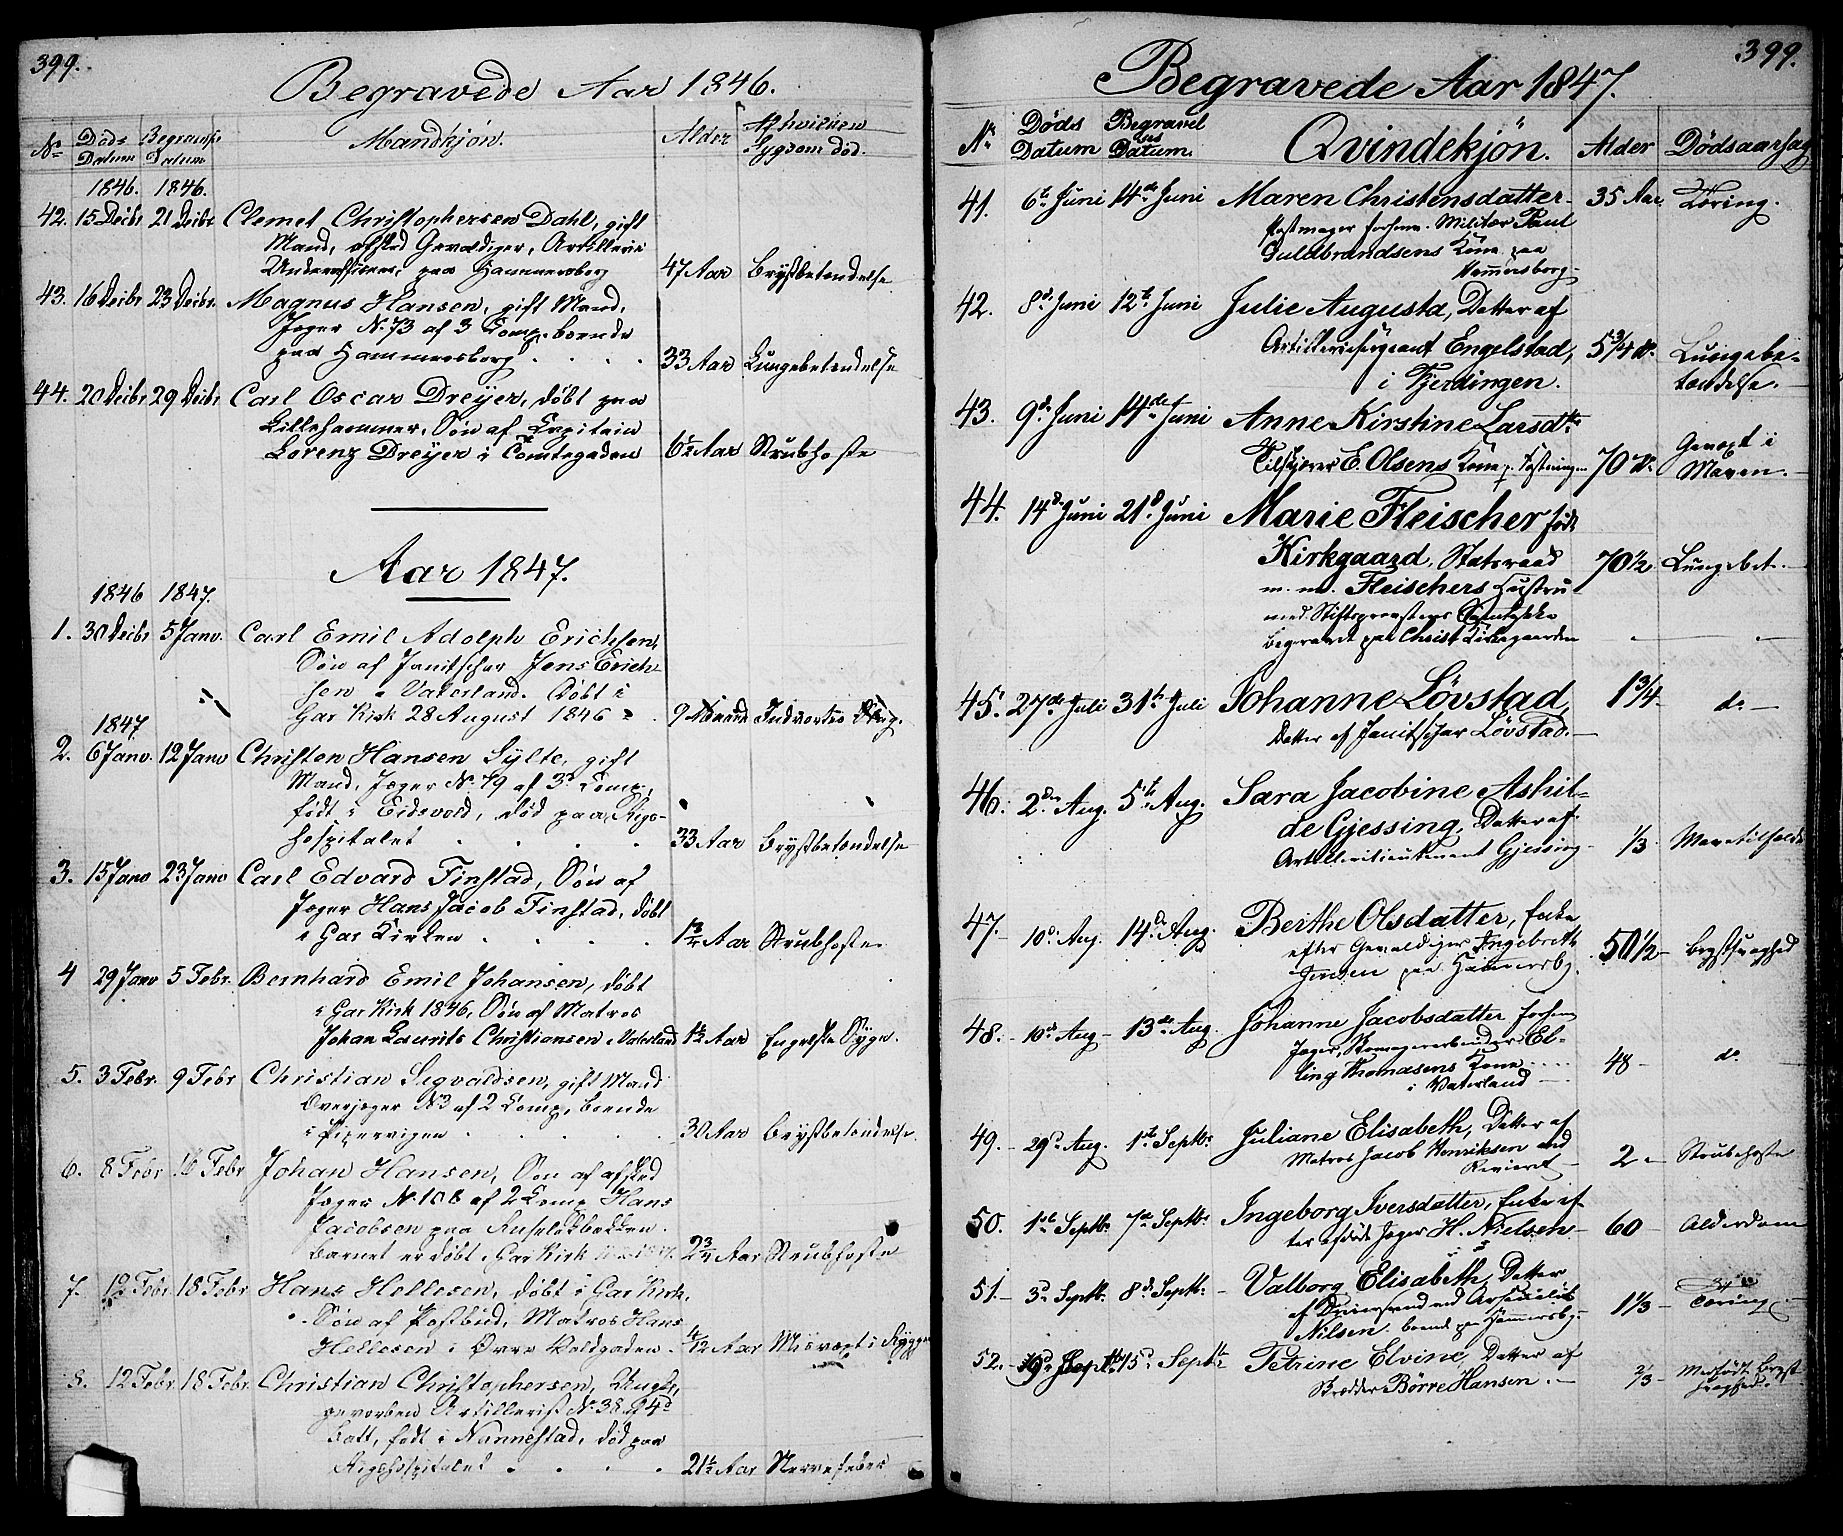 399.
Begravede Aar 1846.
Nr. Döds Datum Begravels Datum Mandkjön. Alder Af hvilken Sygdom död.
1846. 1846.
42. 15 Decbr 21 Decbr Clemet Christophersen Dahl, gift
Mand, afsked Gevaldiger, Artillerie
Underofficeer, paa Hammersborg 47 Aar Brystbetændelse
43. 16 Decbr 23 Decbr. Magnus Hansen, gift Mand,
Jæger No. 73 af 3 Comp. boende
paa Hammersborg . . . 33 Aar Lungebetændelse
44. 20 Decbr 29 Decbr. Carl Oscar Dreyer, døbt paa
Lillehammer, Søn af Capitain
Lorenz Dreyer i Comtegaden 6½ Aar Strubhoste
Aar 1847.
1846 1847.
1. 30 Decbr 5 Janv. Carl Emil Adolph Erichsen,
Søn af Janitschar Jens Erich-
sen i Vaterland. Døbt i
Gar Kirk 28 August 1846 9 Maaned Indvortes Slag.
1847.
2. 6 Janv. 12 Janv Christen Hansen Sylte, gift
Mand, Jæger No. 79 af 3d Comp.
født i Eidsvold, død paa Rigs-
hospitalet . . . . 33 Aar Brystbetændelse
3. 15 Janv 23 Janv Carl Edvard Finstad, Søn af
Jæger Hans Jacob Finstad, døbt
i Gar Kirken . . . 1¾ Aar Strubhoste
4 29 Janv 5 Febr. Bernhard Emil Johansen, døbt
i Gar Kirk 1846, Søn af Matros
Johan Laurits Christiansen i Vaterland 1½ Aar Engelske Syge.
5. 3 Febr. 9 Febr Christian Segvaldsen, gift Mand
Overjæger No 3 af 2 Comp, boende
i Pipervigen . . . . 30 Aar Brystbetændelse.
6. 8 Febr 16 Febr Johan Hansen, Søn af afsked
Jæger No. 108 af 2 Comp Hans
Jacobsen paa Ruseløkbakken.
Barnet er døbt i Gar Kirk 2¾ Aar Strubhoste
7. 12 Febr. 18 Febr Hans Hellesen, døbt i Gar Kirk.
Søn af Postbud, Matros Hans
Hellesen i Øvre Voldgaden. 4/12 Aar Misvæxt i Ryggen
8. 12 Febr. 18 Febr. Christian Christophersen, Ungk,
gevorben Artillerist No. 38 4d
Batt, født i Nannestad, død paa
Rigshospitalet . . . . 21½ Aar Nervefeber
399.
Begravede Aar 1847.
Nr. Döds Datum Begravelses Datum. Qvindekjön. Alder Dödsaarsag
41. 6te Juni 14de Juni Maren Christensdatter 35 Aar. Tæring.
forhenv. Militær Paul
Guldbrandsens Kone paa
Hammersborg
42. 8de Juni 12te Juni Julie Augusta, Datter af
Artilleriesergeant Engelstad, 5¾ do. Lungebe-
i Fjerdingen. tændelse.
43. 9de Juni 14de Juni Anne Kirstine Larsdtr.
Tilskjærer E. Olsens Kone p. Fæstningen 70 do. Gevæxt i
Maven.
44. 14de Juni 21de Juni Marie Fleischer født
Kirkgaard, Statsraad 70½ Lungebet.
m. m. Fleischers Hustru
med Stiftsprovstens Samtykke
begravet paa Christ Kirkegaarden
45. 27de Juli 31te Juli Johanne Lövstad, 1¾ do
Datter af Janitschar Lövstad.
46. 2den Aug. 5te Aug. Sara Jacobine Ashil-
de Gjessing, Datter af
Artillerilieutenant Gjessing 1/3 Mavetilfælde
47. 10de Aug. 14de Aug. Berthe Olsdatter, Enke
efter Gevaldiger Ingebreth 50½ Brystsvaghed
Jensen paa Hammersbg.
48. 10de Aug. 13de Aug. Johanne Jacobsdatter forhen
Jæger, El-
ling Thomasens Kone 48 do.
i Vaterland
49. 29de Aug. 1ste Septbr Juliane Elisabeth, Datter af
Matros Jacob Henriksen ved
Revieret 2 Strubehoste
50. 1ste Septbr. 7de Septbr Ingeborg Iversdatter, Enke ef-
ter afdøde Jæger H. Nielsen 60 Alderdom
51. 3de Septbr. 8de Septbr. Valborg Elisabeth, Datter
af ved Arsenalet
Nilsen, boende paa Hammersbg. 1⅓ Tæring
52. 9de Septbr 15de Septbr Petrine Elvine, Datter af
Skrædder Börre Hansen. ⅔ Bryst
svaghed.